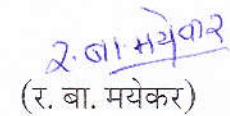 र. बा. मयेकर
(र. बा. मयेकर)